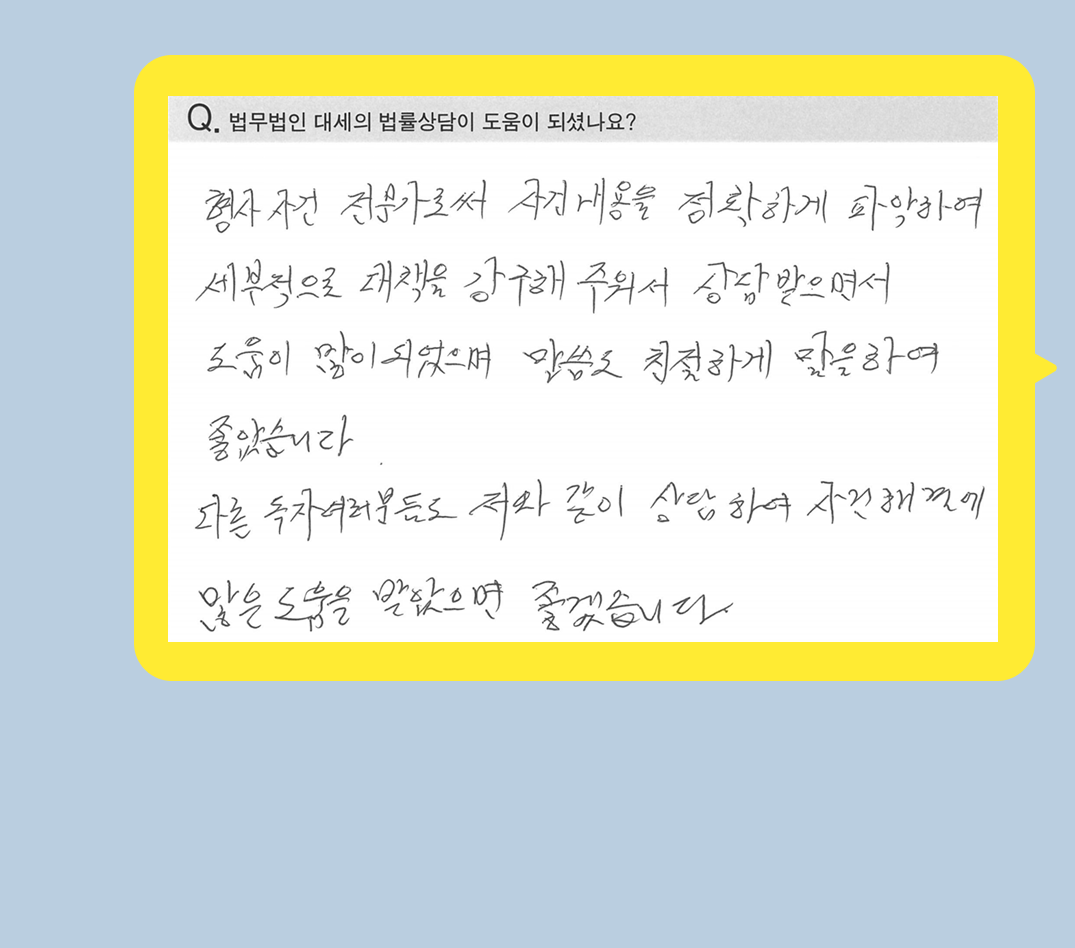 Q. 법무법인 대세의 법률상담이 도움이 되셨나요?
형사 사건 전문가로써 사건내용을 정확하게 파악하여
세부적으로 대책을 강구해 주워서 상담받으면서
도움이 많이되었으며 말씀도 친절하게 말을하여
좋았습니다
다른 독자여러분들도 저와 같이 상담하여 사건해결에
많은 도움을 받았으면 좋겠습니다.